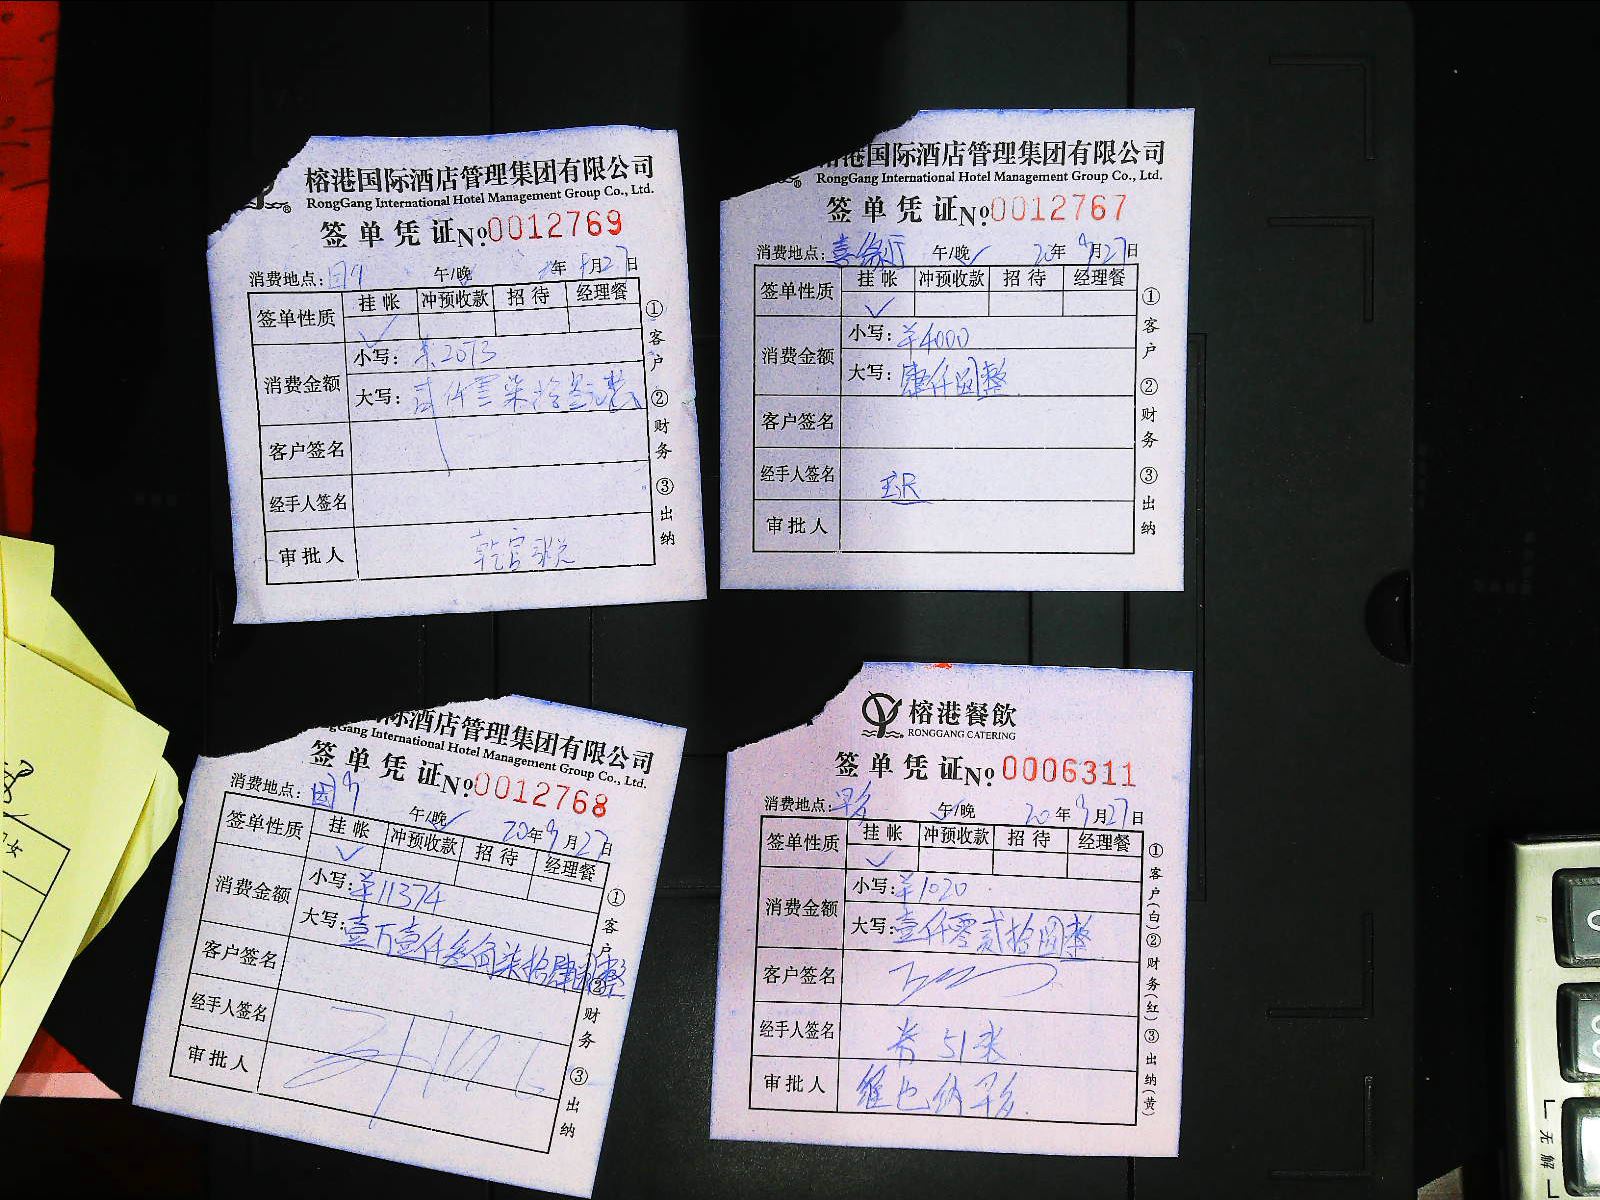 榕港国际酒店管理集团有限公司
RongGang International Hotel Management Group Co., Ltd.
签单凭证№0012769
消费地点: 午/晚 年 月27日
签单性质 挂帐 冲预收款 招待 经理餐
✓
消费金额 小写: 2073
大写: 贰仟零柒拾叁元整
客户签名
经手人签名
审批人
①客户 ②财务 ③出纳
港国际酒店管理集团有限公司
RongGang International Hotel Management Group Co., Ltd.
签单凭证№0012767
消费地点: 午/晚✓ 20年9月27日
签单性质 挂帐 冲预收款 招待 经理餐
✓
消费金额 小写: ¥4000
大写: 肆仟圆整
客户签名
经手人签名
审批人
①客户 ②财务 ③出纳
际酒店管理集团有限公司
gGang International Hotel Management Group Co., Ltd.
签单凭证№0012768
消费地点: 午/晚✓ 20年9月27日
签单性质 挂帐 冲预收款 招待 经理餐
✓
消费金额 小写: ¥11374
大写: 壹万壹仟叁佰柒拾肆圆整
客户签名
经手人签名
审批人
①客户 ②财务 ③出纳
榕港餐飲
RONGGANG CATERING
签单凭证№0006311
消费地点: 午/晚 20年9月27日
签单性质 挂帐 冲预收款 招待 经理餐
✓
消费金额 小写: ¥1020
大写: 壹仟零贰拾圆整
客户签名
经手人签名 券51张
审批人 维也纳早
①客户(白)②财务(红)③出纳(黄)
无
解